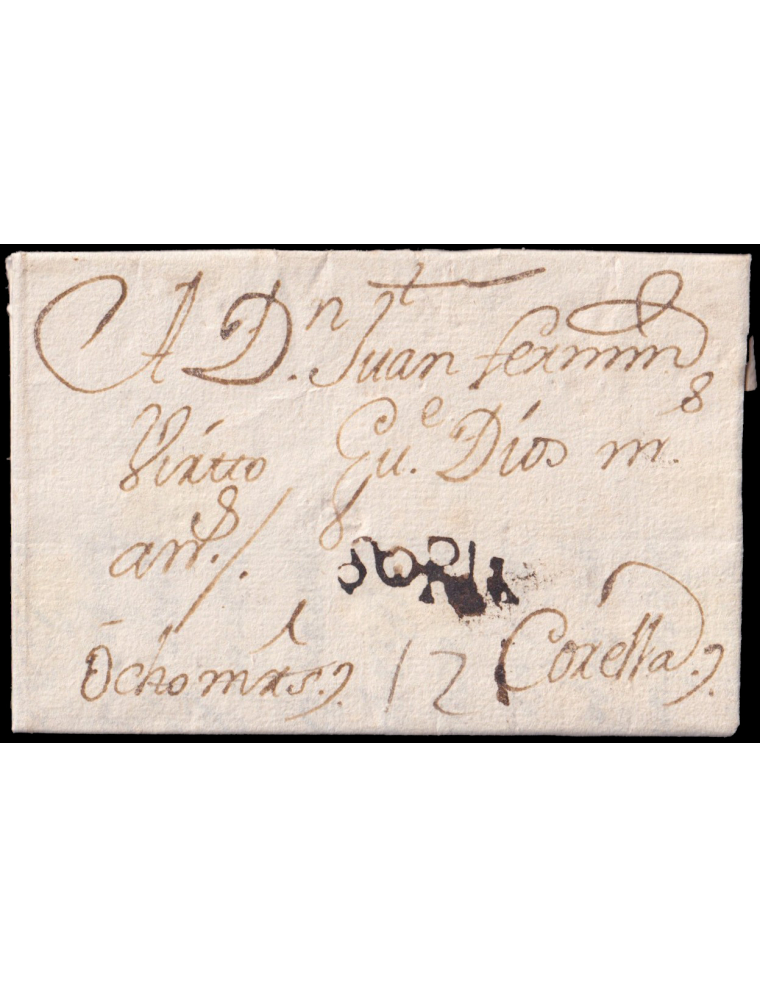 †
A Dn. Juan fermin
Virtto Gue. Dios ms.
ans./.
SORIA
ocho mrs. 12 Corella